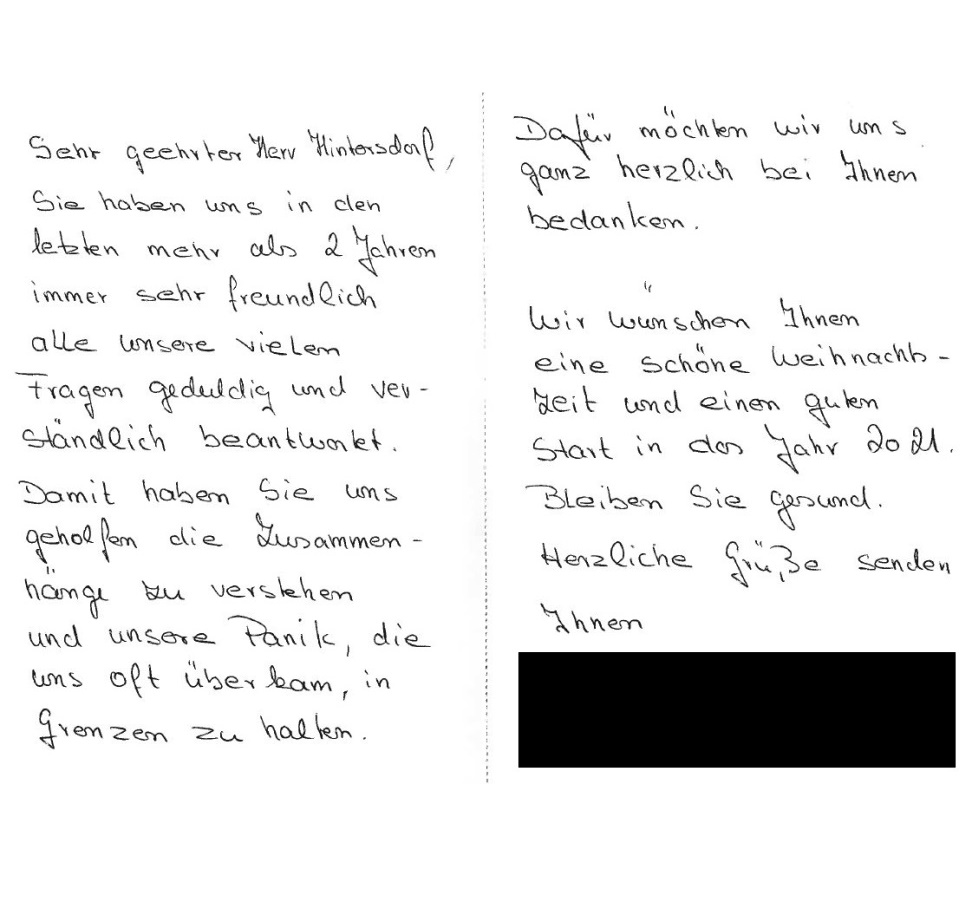 Sehr geehrter Herr Hintersdorf,
Sie haben uns in den
letzten mehr als 2 Jahren
immer sehr freundlich
alle unsere vielen
Fragen geduldig und ver-
ständlich beantwortet.
Damit haben Sie uns
geholfen die Zusammen-
hänge zu verstehen
und unsere Panik, die
uns oft überkam, in
Grenzen zu halten.
Dafür möchten wir uns
ganz herzlich bei Ihnen
bedanken.
Wir wünschen Ihnen
eine schöne Weihnachts-
zeit und einen guten
Start in das Jahr 2021.
Bleiben Sie gesund.
Herzliche Grüße senden
Ihnen